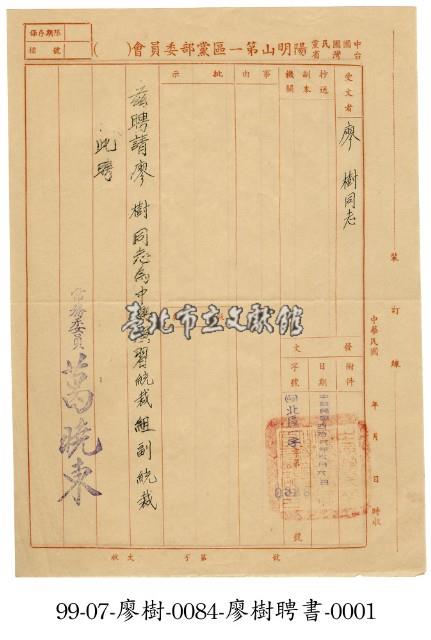 中國國民黨台灣省陽明山第一區黨部委員會(　)
保存期限
檔號
受文者
廖　樹同志
抄送副本機關
事由
批示
茲聘請廖　樹同志為中
統裁組副統裁
此聘
常務委員
萬曉東
發文
附件
日期
字號
號
中華民國　年　月　日　時收
裝訂線
收文　字第　號
臺北市立文獻館
99-07-廖樹-0084-廖樹聘書-0001